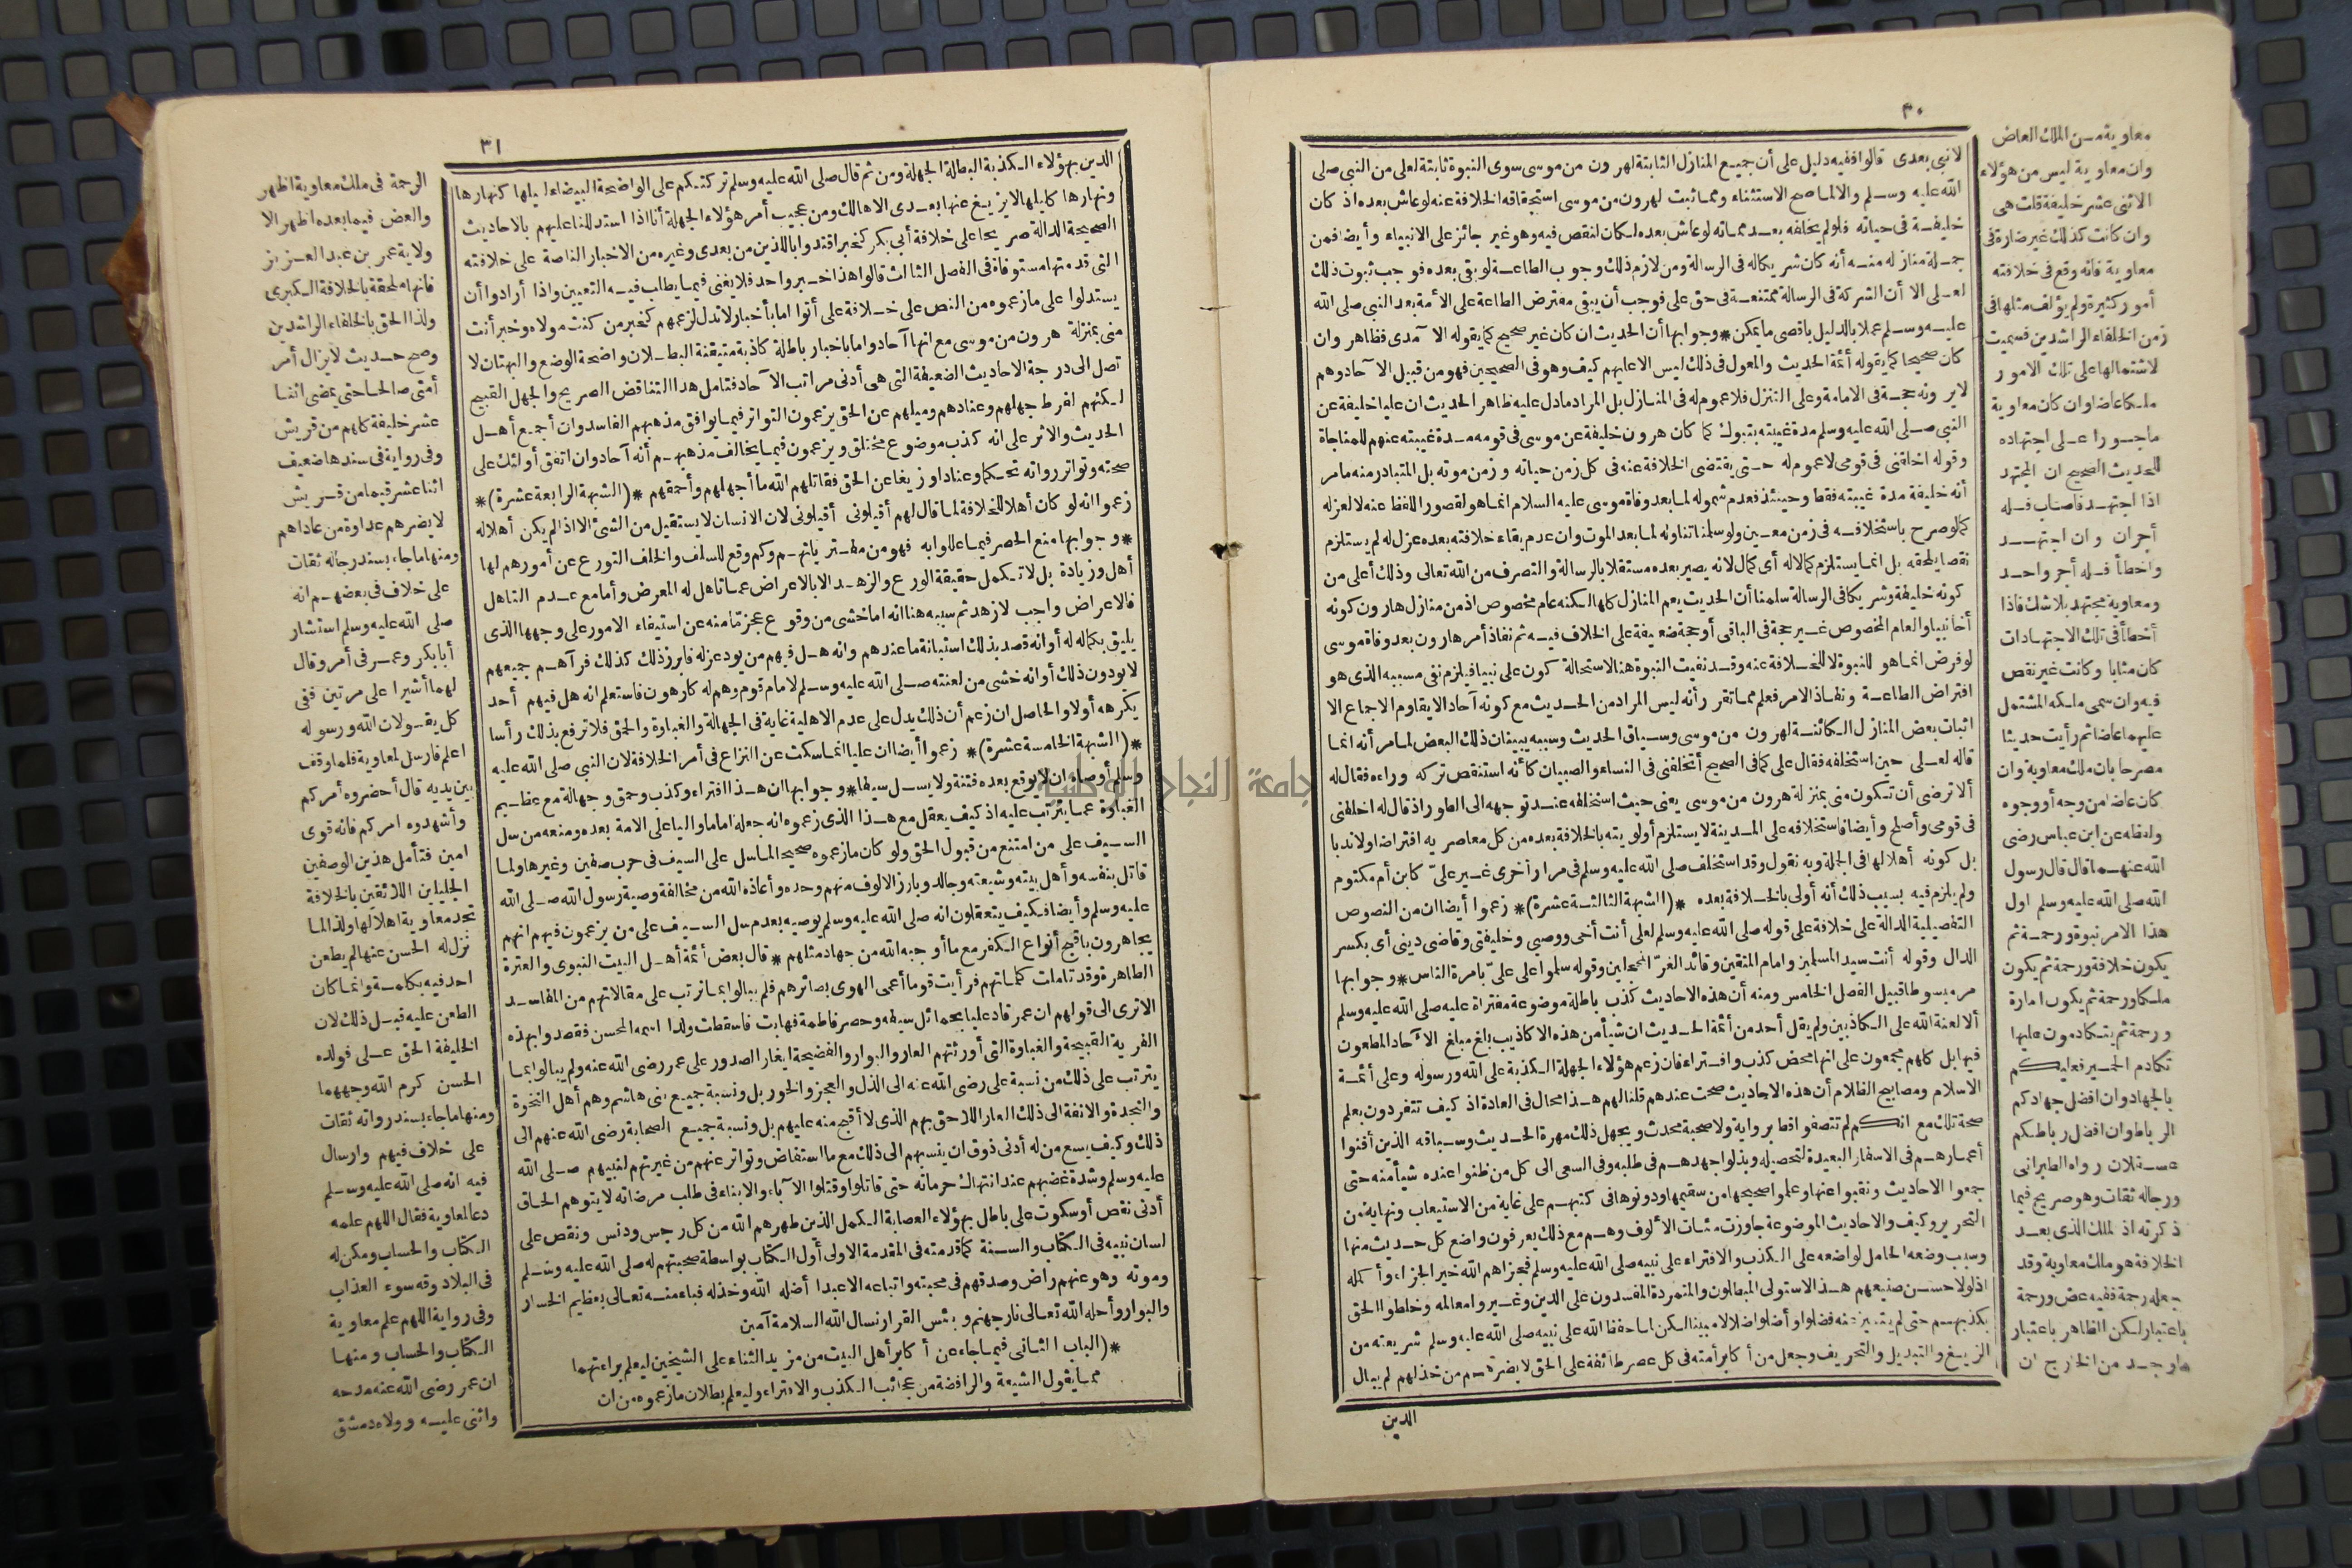 ٣٠
لا نبي بعدى قالوا ففيه دليل على أن جميع المنازل الثابتة لهرون من موسى سوى النبوة ثابتة لعلى من النبي صلى
الله عليه وسلم والا لما صح الاستثناء ومما ثبت لهرون من موسى استحقاقه الخلافة عنه لو عاش بعده اذ كان
خليفة فى حياته فلو لم يخلفه بعد مماته لو عاش بعده لكان لنقص فيه وهو غير جائز على الانبياء وأيضا فمن
جملة منازله منه أنه كان شريكا له فى الرسالة ومن لازم ذلك وجوب الطاعة لو بقى بعده فوجب ثبوت ذلك
لعلى الا أن الشركة فى الرسالة ممتنعة فى حق على فوجب أن يبقى مفترض الطاعة على الأمة بعد النبي صلى الله
عليه وسلم عملا بالدليل باقصى ما يمكن * وجوابها أن الحديث ان كان غير صحيح كما يقوله الآمدى فظاهر وان
كان صحيحا كما يقوله أئمة الحديث والمعول فى ذلك ليس الا عليهم كيف وهو فى الصحيحين فهو من قبيل الآحاد وهم
لا يرونه حجة فى الامامة وعلى التنزل فلا عموم له فى المنازل بل المراد ما دل عليه ظاهر الحديث ان عليا خليفة عن
النبي صلى الله عليه وسلم مدة غيبته بتبوك كما كان هرون خليفة عن موسى فى قومه مدة غيبته عنهم للمناجاة
وقوله اخلفنى فى قومى لا عموم له حتى يقتضى الخلافة عنه فى كل زمن حياته وزمن موته بل المتبادر منه ما مر
أنه خليفة مدة غيبته فقط وحينئذ فعدم شموله لما بعد وفاة موسى عليه السلام انما هو لقصور اللفظ عنه لا لعزله
كما لو صرح باستخلافه فى زمن معين ولو سلمنا تناوله لما بعد الموت وان عدم بقاء خلافته بعده عزل له لم يستلزم
نقصا يلحقه بل انما يستلزم كمالا له أى كمال لانه يصير بعده مستقلا بالرسالة والتصرف من الله تعالى وذلك أعلى من
كونه خليفة وشريكا فى الرسالة سلمنا أن الحديث يعم المنازل كلها لكنه عام مخصوص اذ من منازل هارون كونه
أخا نبيا والعام المخصوص غير حجة فى الباقى أو حجة ضعيفة على الخلاف فيه ثم نفاذ أمر هارون بعد وفاة موسى
لو فرض انما هو للنبوة لا للخلافة عنه وقد نفيت النبوة هنا لاستحالة كون على نبيا فيلزم نفى مسببه الذى هو
افتراض الطاعة ونفاذ الامر فعلم مما تقرر أنه ليس المراد من الحديث مع كونه آحادا لا يقاوم الاجماع الا
اثبات بعض المنازل الكائنة لهرون من موسى وسياق الحديث وسببه يبينان ذلك البعض لما مر أنه انما
قاله لعلى حين استخلفه فقال على كما فى الصحيح أتخلفنى فى النساء والصبيان كأنه استنقص تركه وراءه فقال له
ألا ترضى أن تكون منى بمنزلة هرون من موسى يعنى حيث استخلفه عند توجهه الى الطور اذ قال له اخلفنى
فى قومى وأصلح وأيضا فاستخلافه على المدينة لا يستلزم أولويته بالخلافة بعده من كل معاصريه افتراضا ولا ندبا
بل كونه أهلا لها فى الجملة وبه نقول وقد استخلف صلى الله عليه وسلم فى مرار أخرى غير علىّ كابن أم مكتوم
ولم يلزم فيه بسبب ذلك أنه أولى بالخلافة بعده * (الشبهة الثالثة عشرة) * زعموا أيضا ان من النصوص
التفصيلية الدالة على خلافة على قوله صلى الله عليه وسلم لعلى أنت أخى ووصيى وخليفتى وقاضى دينى أى بكسر
الدال وقوله أنت سيد المسلمين وامام المتقين وقائد الغرّ المحجلين وقوله سلموا على علىّ بامرة الناس * وجوابها
مر مبسوطا قبيل الفصل الخامس ومنه أن هذه الاحاديث كذب باطلة موضوعة مفتراة عليه صلى الله عليه وسلم
ألا لعنة الله على الكاذبين ولم يقل أحد من أئمة الحديث ان شيأ من هذه الاكاذيب بلغ مبلغ الآحاد المطعون
فيها بل كلهم مجمعون على انها محض كذب وافتراء فان زعم هؤلاء الجهلة الكذبة على الله ورسوله وعلى أئمة
الاسلام ومصابيح الظلام أن هذه الاحاديث صحت عندهم قلنا لهم هذا محال فى العادة اذ كيف تتفردون بعلم
صحة تلك مع انكم لم تتصفوا قط برواية ولا صحبة محدث ويجهل ذلك مهرة الحديث وسباقه الذين أفنوا
أعمارهم فى الاسفار البعيدة لتحصيله وبذلوا جهدهم فى طلبه وفى السعى الى كل من ظنوا عنده شيأ منه حتى
جمعوا الاحاديث ونقبوا عنها وعلموا صحيحها من سقيمها ودونوها فى كتبهم على غاية من الاستيعاب ونهاية من
التحرير وكيف والاحاديث الموضوعة جاوزت مئات الألوف وهم مع ذلك يعرفون واضع كل حديث منها
وسبب وضعه الحامل لواضعه على الكذب والافتراء على نبيه صلى الله عليه وسلم فجزاهم الله خير الجزاء وأكمله
اذ لولا حسن صنيعهم هذا لاستولى المبطلون والمتمردة المفسدون على الدين وغيروا معالمه وخلطوا الحق
بكذبهم حتى لم يتميز عنه فضلوا وأضلوا ضلالا مبينا لكن لما حفظ الله على نبيه صلى الله عليه وسلم شريعته من
الزيغ والتبديل والتحريف وجعل من أكابر أمته فى كل عصر طائفة على الحق لا يضرهم من خذلهم لم يبال
الدين
معاوية من الملك العاض
وان معاوية ليس من هؤلاء
الاثنى عشر خليفة قلت هى
وان كانت كذلك غير ضارة فى
معاوية فانه وقع فى خلافته
أمور كثيرة ولم يؤلف مثلها فى
زمن الخلفاء الراشدين فسميت
لاشتمالها على تلك الامور
ملكا عاضا وان كان معاوية
ماجورا على اجتهاده
للحديث الصحيح ان المجتهد
اذا اجتهد فاصاب فله
أجران وان اجتهد
واخطأ فله أجر واحد
ومعاوية مجتهد بلا شك فاذا
أخطأ فى تلك الاجتهادات
كان مثابا وكانت غير نقص
فيه وان سمى ملكه المشتمل
عليها عاضا ثم رأيت حديثا
مصرحا بان ملك معاوية وان
كان عاضا من وجه أو وجوه
ولفظه عن ابن عباس رضى
الله عنهما قال قال رسول
الله صلى الله عليه وسلم اول
هذا الامر نبوة ورحمة ثم
يكون خلافة ورحمة ثم يكون
ملكا ورحمة ثم يكون امارة
ورحمة ثم يتكادمون عليها
تكادم الحمير فعليكم
بالجهاد وان افضل جهادكم
الرباط وان افضل رباطكم
عسقلان رواه الطبرانى
ورجاله ثقات وهو صريح فيما
ذكرته اذ الملك الذى بعد
الخلافة هو ملك معاوية وقد
جعله رحمة ففيه عض ورحمة
باعتبار لكن الظاهر باعتبار
ما وجد من الخارج ان
٣١
الدين بهؤلاء الكذبة البطالة الجهلة ومن ثم قال صلى الله عليه وسلم تركتكم على الواضحة البيضاء ليلها كنهارها
ونهارها كليلها لا يزيغ عنها بعدى الا هالك ومن عجيب أمر هؤلاء الجهلة أنا اذا استدللنا عليهم بالاحاديث
الصحيحة الدالة صريحا على خلافة أبى بكر كخبر اقتدوا باللذين من بعدى وغيره من الاخبار الناصة على خلافته
التى قدمتها مستوفاة فى الفصل الثالث قالوا هذا خبر واحد فلا يغنى فيما يطلب فيه التعيين واذا أرادوا أن
يستدلوا على ما زعموه من النص على خلافة على أتوا اما بأخبار لا تدل لزعمهم كخبر من كنت مولاه وخبر أنت
منى بمنزلة هرون من موسى مع انها آحاد واما باخبار باطلة كاذبة متيقنة البطلان واضحة الوضع والبهتان لا
تصل الى درجة الاحاديث الضعيفة التى هى أدنى مراتب الآحاد فتامل هذا التناقض الصريح والجهل القبيح
لكنهم لفرط جهلهم وعنادهم وميلهم عن الحق يزعمون التواتر فيما يوافق مذهبهم الفاسد وان أجمع أهل
الحديث والاثر على انه كذب موضوع مختلق ويزعمون فيما يخالف مذهبهم أنه آحاد وان اتفق أولئك على
صحته وتواتر رواته تحكما وعنادا وزيغا عن الحق فقاتلهم الله ما أجهلهم وأحمقهم * (الشبهة الرابعة عشرة) *
زعموا انه لو كان أهلا للخلافة لما قال لهم أقيلونى أقيلونى لان الانسان لا يستقيل من الشئ الا اذا لم يكن أهلا له
* وجوابها منع الحصر فيما عللوا به فهو من مفترياتهم وكم وقع للسلف والخلف التورع عن أمور هم لها
أهل وزيادة بل لا تكمل حقيقة الورع والزهد الا بالاعراض عما تاهل له المعرض وأما مع عدم التاهل
فالاعراض واجب لا زهد ثم سببه هنا انه اما خشى من وقوع عجز ما منه عن استيفاء الامور على وجهها الذى
يليق بكماله له أو انه قصد بذلك استبانة ما عندهم وانه هل فيهم من يود عزله فابرز ذلك كذلك فرآهم جميعهم
لا يودون ذلك أو انه خشى من لعنته صلى الله عليه وسلم لامام قوم وهم له كارهون فاستعلم انه هل فيهم أحد
يكرهه أو لا والحاصل ان زعم أن ذلك يدل على عدم الاهلية غاية فى الجهالة والغباوة والحمق فلا ترفع بذلك رأسا
* (الشبهة الخامسة عشرة) * زعموا أيضا ان عليا انما سكت عن النزاع فى أمر الخلافة لان النبي صلى الله عليه
وسلم أوصاه ان لا يوقع بعده فتنة ولا يسل سيفا * وجوابها ان هذا افتراء وكذب وحمق وجهالة مع عظيم
الغباوة عما يترتب عليه اذ كيف يعقل مع هذا الذى زعموه انه جعله اماما واليا على الامة بعده ومنعه من سل
السيف على من امتنع من قبول الحق ولو كان ما زعموه صحيحا لما سل على السيف فى حرب صفين وغيرها ولما
قاتل بنفسه وأهل بيته وشيعته وجالد وبارز الالوف منهم وحده وأعاذه الله من مخالفة وصية رسول الله صلى الله
عليه وسلم وأيضا فكيف يتعقلون انه صلى الله عليه وسلم يوصيه بعدم سل السيف على من يزعمون فيهم انهم
يجاهرون باقبح أنواع الكفر مع ما أوجبه الله من جهاد مثلهم * قال بعض أئمة أهل البيت النبوى والعترة
الطاهرة وقد تاملت كلماتهم فرأيت قوما أعمى الهوى بصائرهم فلم يبالوا بما ترتب على مقالاتهم من المفاسد
الا ترى الى قولهم ان عمر قاد عليا بحمائل سيفه وحصر فاطمة فهابت فاسقطت ولدا اسمه المحسن فقصدوا بهذه
الفرية القبيحة والغباوة التى أورثتهم العار والبوار والفضيحة ايغار الصدور على عمر رضى الله عنه ولم يبالوا بما
يترتب على ذلك من نسبة على رضى الله عنه الى الذل والعجز والخور بل ونسبة جميع بنى هاشم وهم أهل النخوة
والنجدة والانفة الى ذلك العار اللاحق بهم الذى لا أقبح منه عليهم بل ونسبة جميع الصحابة رضى الله عنهم الى
ذلك وكيف يسع من له أدنى ذوق ان ينسبهم الى ذلك مع ما استفاض وتواتر عنهم من غيرتهم لنبيهم صلى الله
عليه وسلم وشدة غضبهم عند انتهاك حرماته حتى قاتلوا وقتلوا الآباء والابناء فى طلب مرضاته لا يتوهم الحاق
أدنى نقص أو سكوت على باطل بهؤلاء العصابة الكمل الذين طهرهم الله من كل رجس ودنس ونقص على
لسان نبيه فى الكتاب والسنة كما قدمته فى المقدمة الاولى أول الكتاب بواسطة صحبتهم له صلى الله عليه وسلم
وموته وهو عنهم راض وصدقهم فى محبته واتباعه الا عبدا أضله الله وخذله فباء منه تعالى بعظيم الخسار
والبوار وأحله الله تعالى نار جهنم وبئس القرار نسال الله السلامة آمين
* (الباب الثانى فيما جاء عن أكابر أهل البيت من مزيد الثناء على الشيخين ليعلم براءتهما
مما يقول الشيعة والرافضة من عجائب الكذب والافتراء وليعلم بطلان ما زعموه من ان
الرحمة فى ملك معاوية اظهر
والعض فيما بعده اظهر الا
ولاية عمر بن عبد العزيز
فانها ملحقة بالخلافة الكبرى
ولذا الحق بالخلفاء الراشدين
وصح حديث لا يزال أمر
أمتى صالحا حتى يمضى اثنا
عشر خليفة كلهم من قريش
وفى رواية فى سندها ضعيف
اثنا عشر قيما من قريش
لا يضرهم عداوة من عاداهم
ومنها ما جاء بسند رجاله ثقات
على خلاف فى بعضهم انه
صلى الله عليه وسلم استشار
أبا بكر وعمر فى أمر وقال
لهما أشيرا على مرتين ففى
كل يقولان الله ورسوله
اعلم فارسل لمعاوية فلما وقف
بين يديه قال أحضروه أمركم
وأشهدوه امركم فانه قوى
امين فتأمل هذين الوصفين
الجليلين اللائقين بالخلافة
تجد معاوية اهلا لها ولذا لما
نزل له الحسن عنها لم يطعن
احد فيه بكلمة وانما كان
الطعن عليه قبل ذلك لان
الخليفة الحق على فولده
الحسن كرم الله وجههما
ومنها ما جاء بسند رواته ثقات
على خلاف فيهم وارسال
فيه انه صلى الله عليه وسلم
دعا لمعاوية فقال اللهم علمه
الكتاب والحساب ومكن له
فى البلاد وقه سوء العذاب
وفى رواية اللهم علم معاوية
الكتاب والحساب ومنها
ان عمر رضى الله عنه مدحه
واثنى عليه وولاه دمشق
جامعة النجاح الوطنية